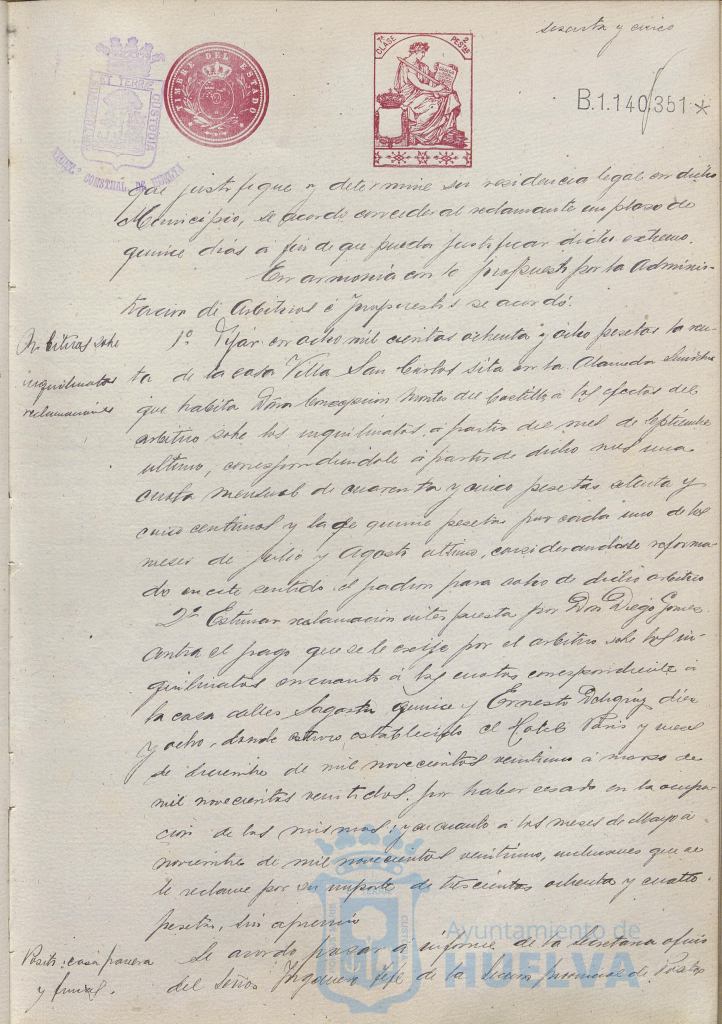 sesenta y cinco
TIMBRE DEL ESTADO
7ª CLASE 2 PESTAS
B.1.140,351 *
HUELVA
que justifique y determine su residencia legal en dicho
Municipio, se acordó conceder al reclamante un plazo de
quince dias a fin de que pueda justificar dicho extremo.
En armonia con lo propuesto por la Adminis-
tracion de Arbitrios é Impuestos se acordó:
Arbitrios sobre
inquilinatos
reclamaciones
1º Fijar en ocho mil cientas ochenta y ocho pesetas la ren-
ta de la casa Villa San Carlos sita en la Alameda
que habita Doña Concepcion del Castillo á los efectos del
arbitrio sobre los inquilinatos, á partir del mes de Septiembre
ultimo, correspondiendole á partir de dicho mes una
cuota mensual de cuarenta y cinco pesetas setenta y
cinco centimos y la de quince pesetas por cada uno de los
meses de Julio y Agosto ultimo, considerandose reforma-
do en este sentido el padron para cobro de dicho arbitrio
2º Estimar reclamacion interpuesta por Don Diego Gomez
contra el pago que se le exije por el arbitrio sobre los in-
quilinatos en cuanto á las cuotas correspondiente á
la casa calles Sagasta quince y Ernesto Deligny diez
y ocho, donde estuvo establecido el Hotel Paris y meses
de Diciembre de mil novecientos veintiuno á marzo de
mil novecientos veintidos, por haber cesado en la ocupa-
cion de las mismas; y en cuanto á los meses de Mayo á
noviembre de mil novecientos veintiuno, inclusives que se
le reclame por su importe de trescientas ochenta y cuatro
pesetas, sin apremio
Posito: casa panera
y
Se acordó pasar á informe de la secretaria oficio
del Señor Ingeniero Jefe de la Seccion provincial de Positos
Ayuntamiento de
HUELVA